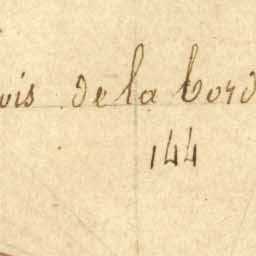 ois de la Cord
144